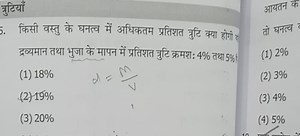 त्रुटियाँ
5. किसी वस्तु के घनत्व में अधिकतम प्रतिशत त्रुटि क्या होगी
द्रव्यमान तथा भुजा के मापन में प्रतिशत त्रुटि क्रमशः 4% तथा 5%
(1) 18%
d = M/V
(2) 19%
(3) 20%
आयतन के
तो घनत्व
(1) 2%
(2) 3%
(3) 4%
(4) 5%